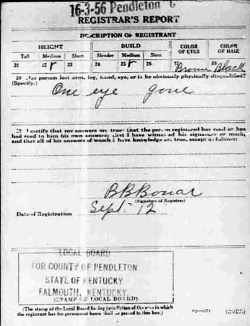 16-3-56 Pendleton C
REGISTRAR'S REPORT
DESCRIPTION OF REGISTRANT
HEIGHT BUILD COLOR OF EYES COLOR OF HAIR
Tall Medium Short Slender Medium Stout
21 22 r 23 24 25 r 26 27 Brown 28 Black
29 Has person lost arm, leg, hand, eye, or is he obviously physically disqualified?
(Specify)
One eye gone
30 I certify that my answers are true; that the person registered has read or has
had read to him his own answers; that I have witnessed his signature or mark,
and that all of his answers of which I have knowledge are true, except as follows:
B B Bonar
(Signature of Registrar)
Date of Registration Sept. 12
LOCAL BOARD
FOR COUNTY OF PENDLETON
STATE OF KENTUCKY
FALMOUTH, KENTUCKY
(STAMP OF LOCAL BOARD)
(The stamp of the Local Board having jurisdiction of the area in which
the registrant has his permanent home shall be placed in this box.)